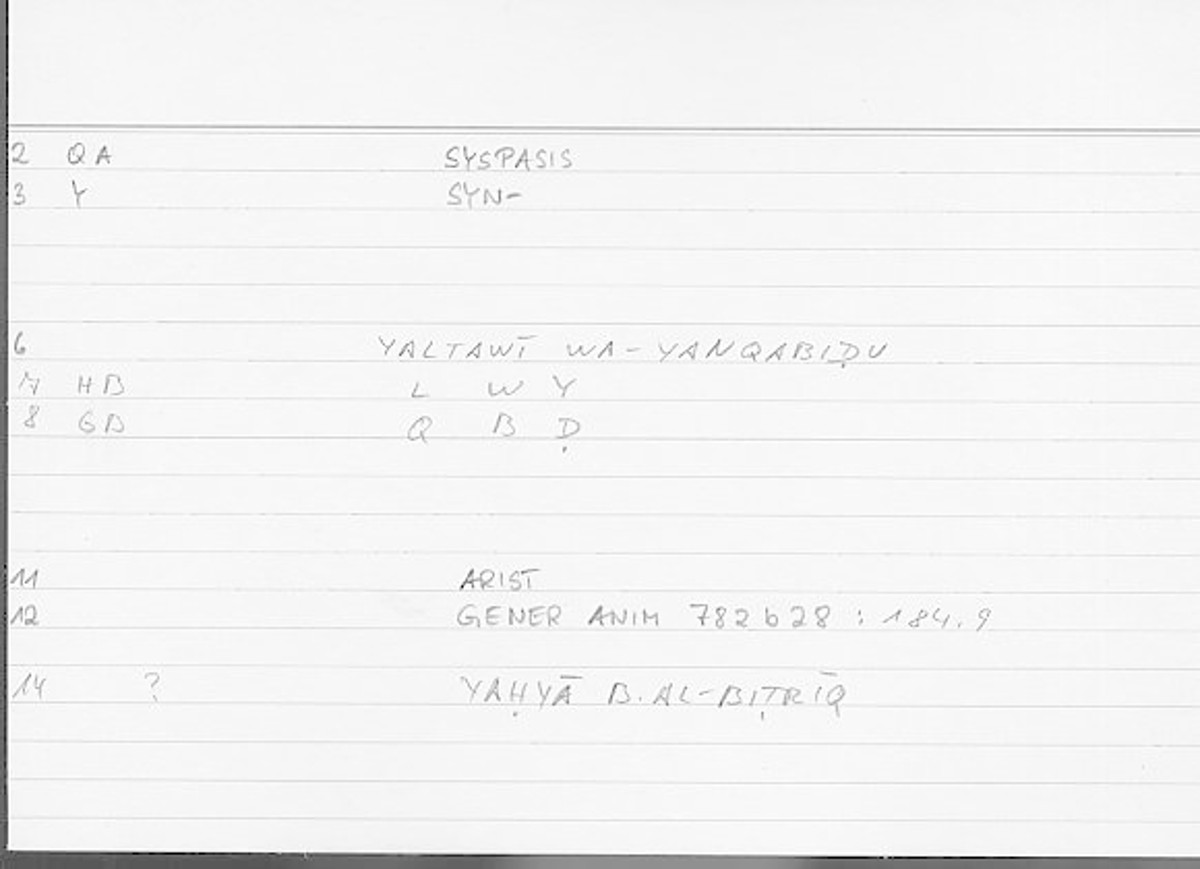 2 QA SYSPASIS
3 Y SYN-
6 YALTAWĪ WA-YANQABIḌU
7 HB L W Y
8 GB Q B Ḍ
11 ARIST
12 GENER ANIM 782b28 : 184.9
14 ? YAḤYĀ B. AL-BIṬRĪQ